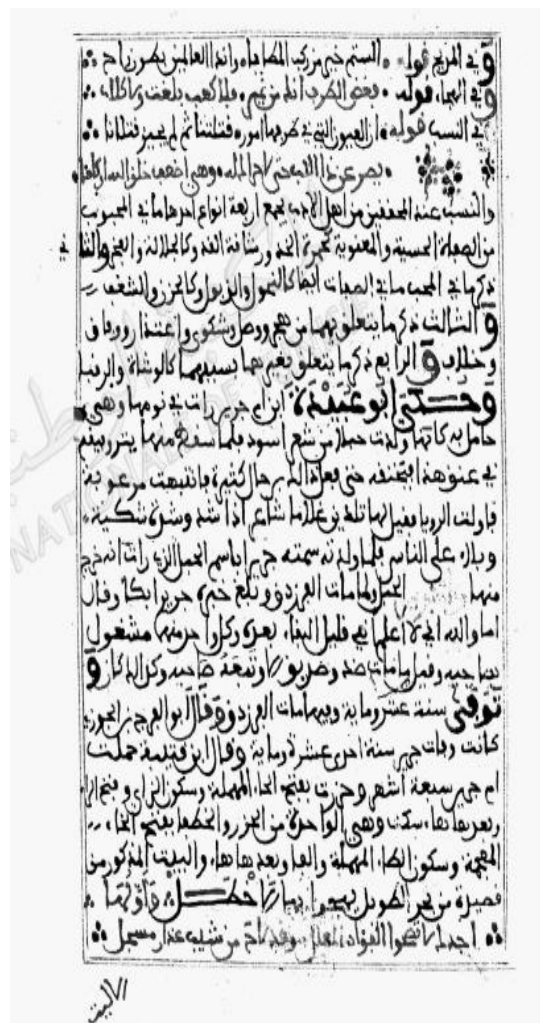 وفي المديح قوله ٠ الستم خير من ركب المطايا ٠ واندا العالمين بطون راح
وفي الهجاء قوله ٠ فغض الطرف انك من نمير ٠ فلا كعب بلغت ولا كلاب
في النسيب قوله ٠ ان العيون التي في طرفها حور ٠ قتلننا ثم لم يحيين قتلانا
يصرعن ذا اللب حتى لا حراك له ٠ وهن اضعف خلق الله اركانا
والنسيب عند المحققين من اهل الادب يجمع اربعة انواع احدها ما في المحبوب
من الصفات الحسية والمعنوية كحمرة الخد ورشاقة القد وكالجلالة والخفر والثاني
ذكر ما في المحب من الصفات ايضا كالنحول والذبول وكالحزن والشغف
والثالث ذكر ما يتعلق بهما من هجر ووصل وشكوى واعتذار ووفاق
وخلاف والرابع ذكر ما يتعلق بغيرهما بسببهما كالوشاة والرقبا
وحكى ابو عبيدة ان ام جرير رات في نومها وهي
حامل به كانها ولدت حبلا من شعر اسود فلما سقط منها ينزو فيقع
في عنق هذا فيخنقه حتى فعل ذلك برجال كثيرة فانتبهت مرعوبة
فاولت الرويا فقيل لها تلدين غلاما شاعرا ذا شد وشر وشكيمة
وبلاء على الناس فلما ولدته سمته جريرا باسم الحبل الذي رات انه خرج
منها الحبل ولما مات الفرزدق وبلغ خبره جريرا بكا وقال
اما والله اني لاعلم اني قليل البقاء بعده وكل واحد منهما مشغول
بصاحبه وقل ما مات ضد وصديق الا وتبعه صاحبه وكذلك كان و
توفي سنة عشر وماية وفيها مات الفرزدق وقال ابو الفرج بن الجوزي
كانت وفات جرير سنة احدى عشر وماية وقال ابن قتيبة حملت
ام جرير سبعة اشهر وحزرة بفتح الحاء المهملة وسكون الزاي وفتح الراء
وبعدها هاء سكت وهي الواحدة من الحزر والخطفا بفتح الخاء
المعجمة وسكون الطاء المهملة والفاء وبعدها هاء والبيت المذكور من
قصيدة من بحر الطويل يهجوا بها الاخطل واولها
اجدك لا يصحوا الفؤاد المعلل وقد لاح من شيب عذار ومسحل
البيت